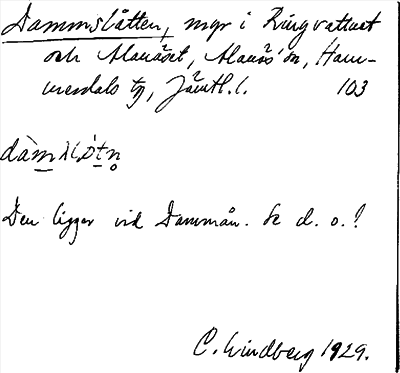 Dammslåtten, myr i Ringvattnet
och Alanäset, Alanäs' sn, Ham-
merdals tg, Jämtl. l. 103
Den ligger vid Dammån. Se d. o.!
C. Lindberg 1929.